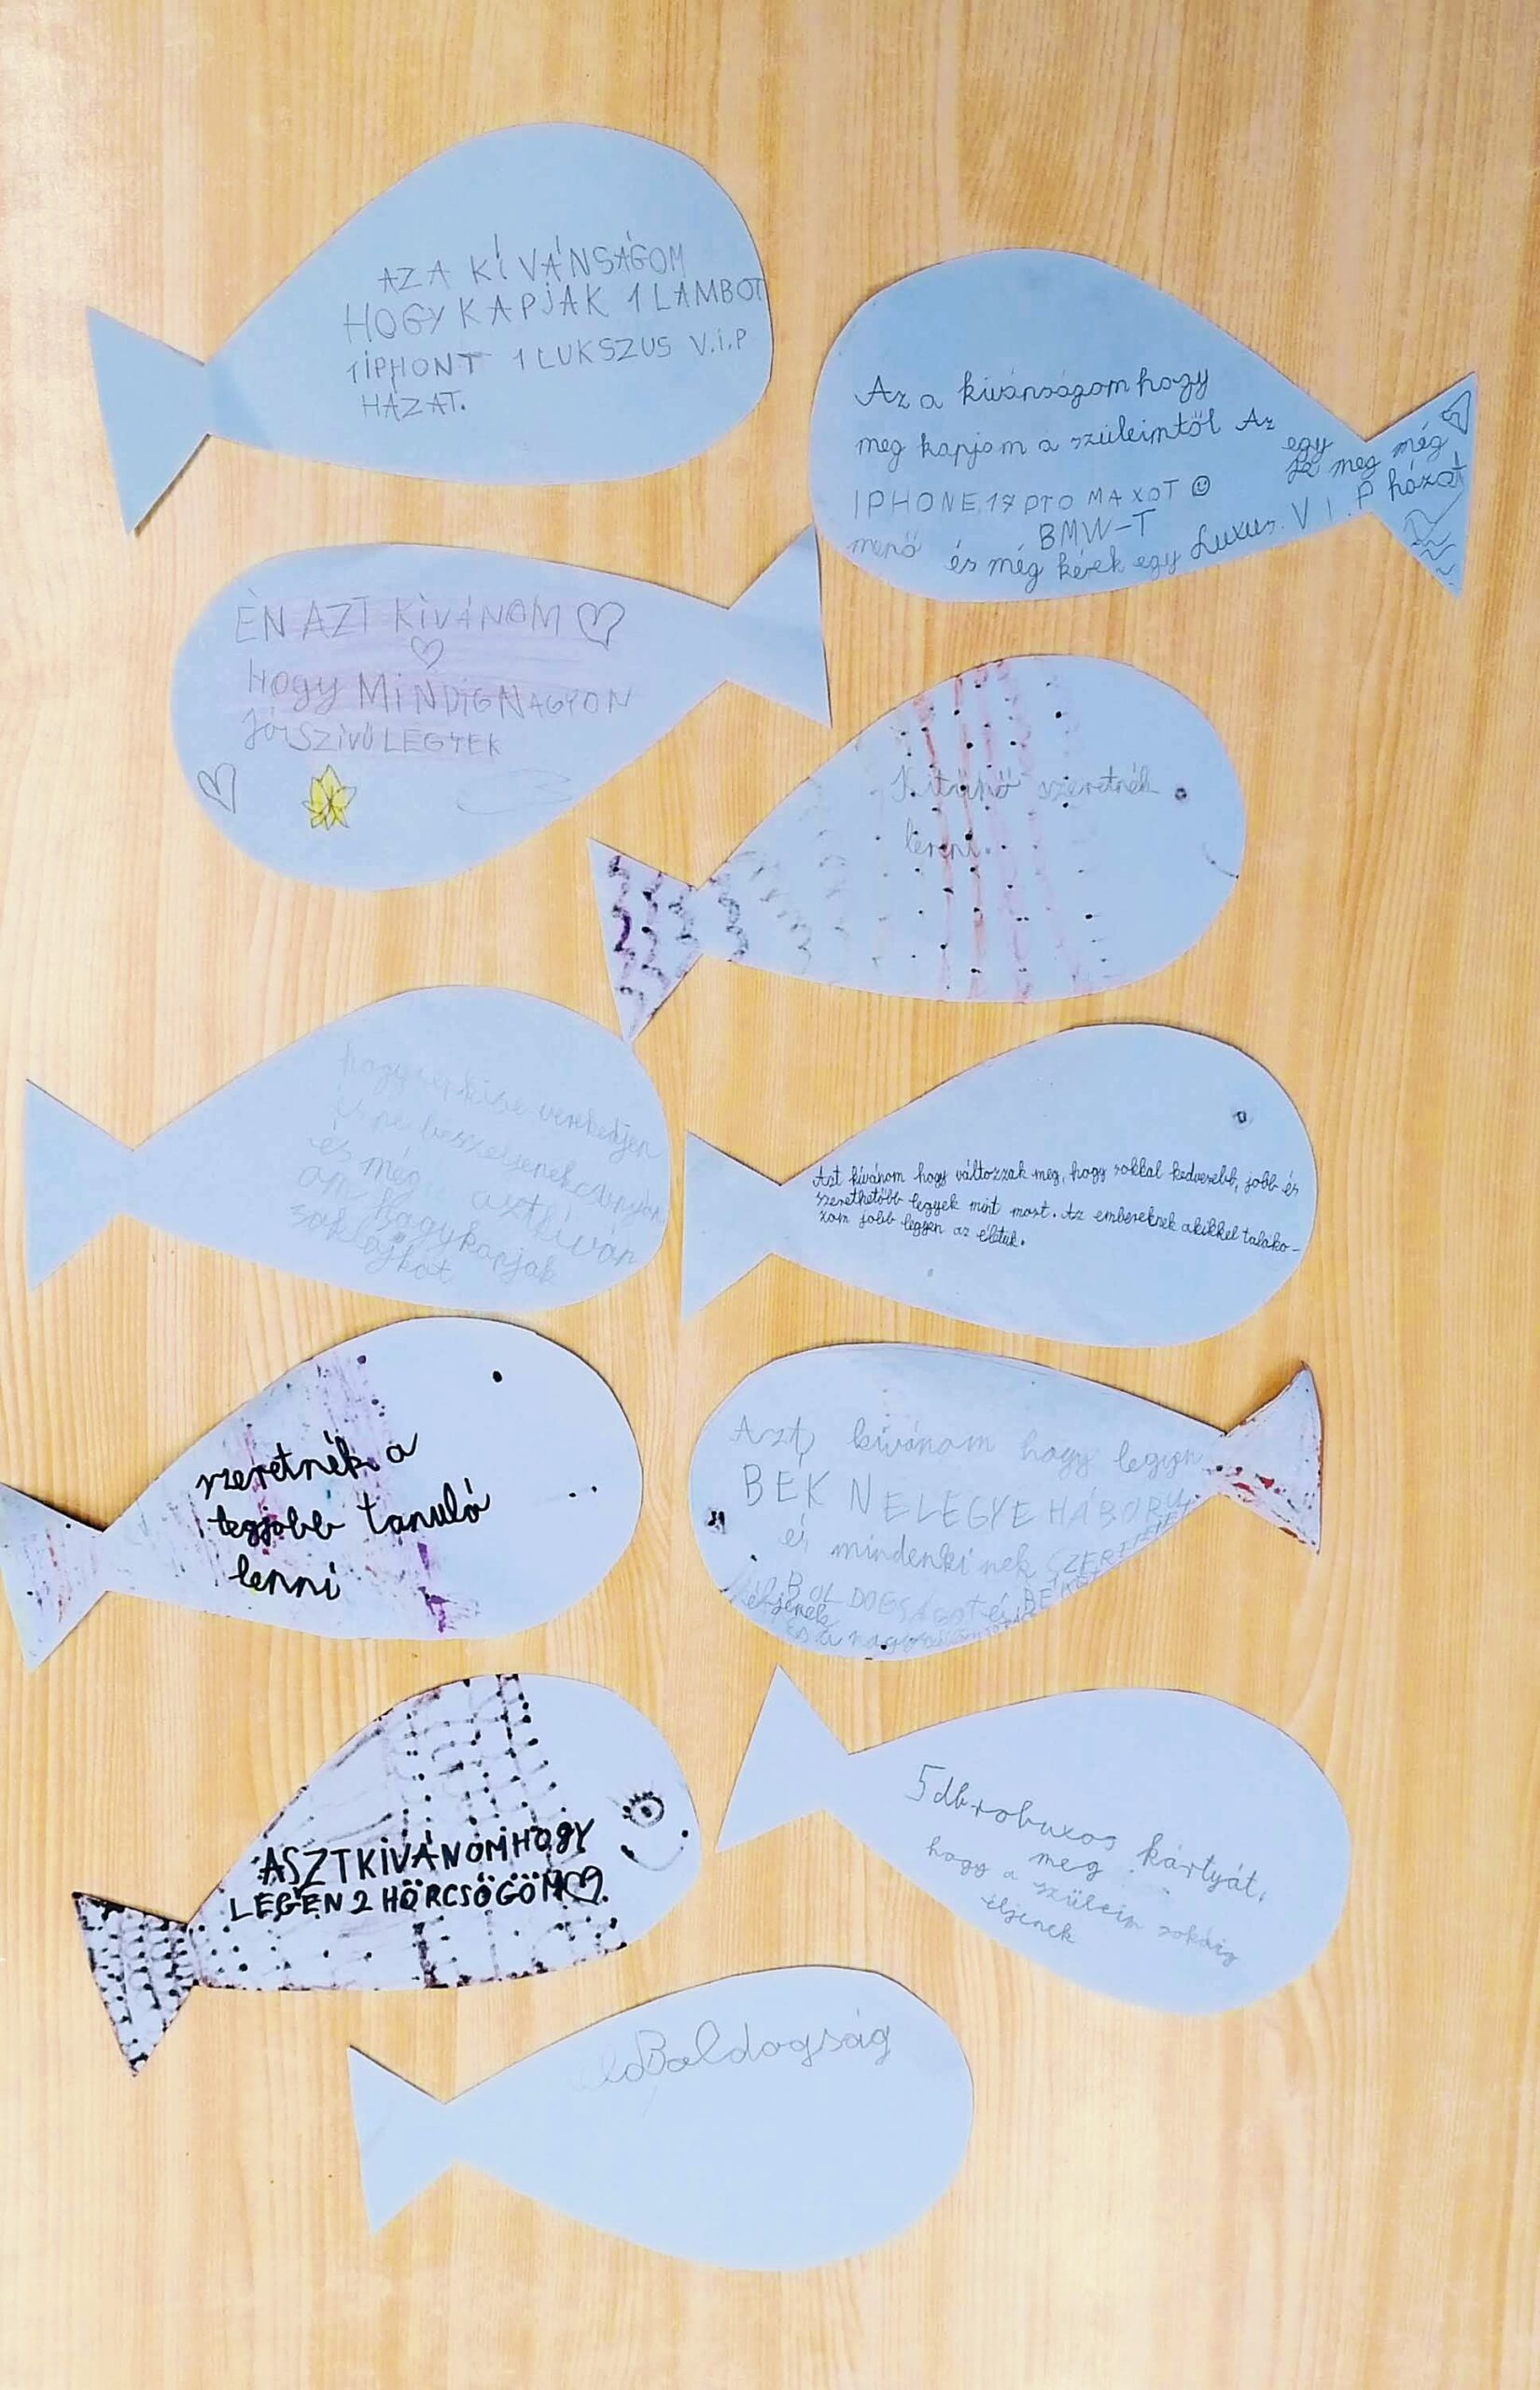 AZ A KÍVÁNSÁGOM
HOGY KAPJAK 1 LAMBOT
1 IPHONT 1 LUKSZUS V.i.P
HÁZAT.
Az a kivánságom hogy
meg kapjam a szüleimtöl Az
IPHONE 17 pro MAXOT ☺
egy
meg még
menő BMW-T
és még kérek egy Luxus. V I. P házat
ÉN AZT KIVÁNOM ♡
♡
Hogy MiNDiG NAGYON
JóSZIVŰ LEGYEK
♡
Kitűnő szeretnék
lenni.
verekedjen
és ne beszéljenek csunyán
és még azt kíván
om hogy kapjak
sok lájkot
Azt kívánom hogy változzak meg, hogy sokkal kedvesebb, jobb és
szerethetőbb legyek mint most. Az embereknek akikkel találko-
zom jobb legyen az életük.
szeretnék a
legjobb tanuló
lenni
Azt kivánom hogy legyen
BÉK NE LEGYE HÁBORU
és mindenki nek SZERETETET
BOLDOGSÁGOT és BÉKÉT
ASZT KIVÁNOM HOGY
LEGEN 2 HÖRCSÖGÖM ♡.
5 db robuxos kártyát,
meg
hogy a szüleim sokáig
éljenek
Boldogság